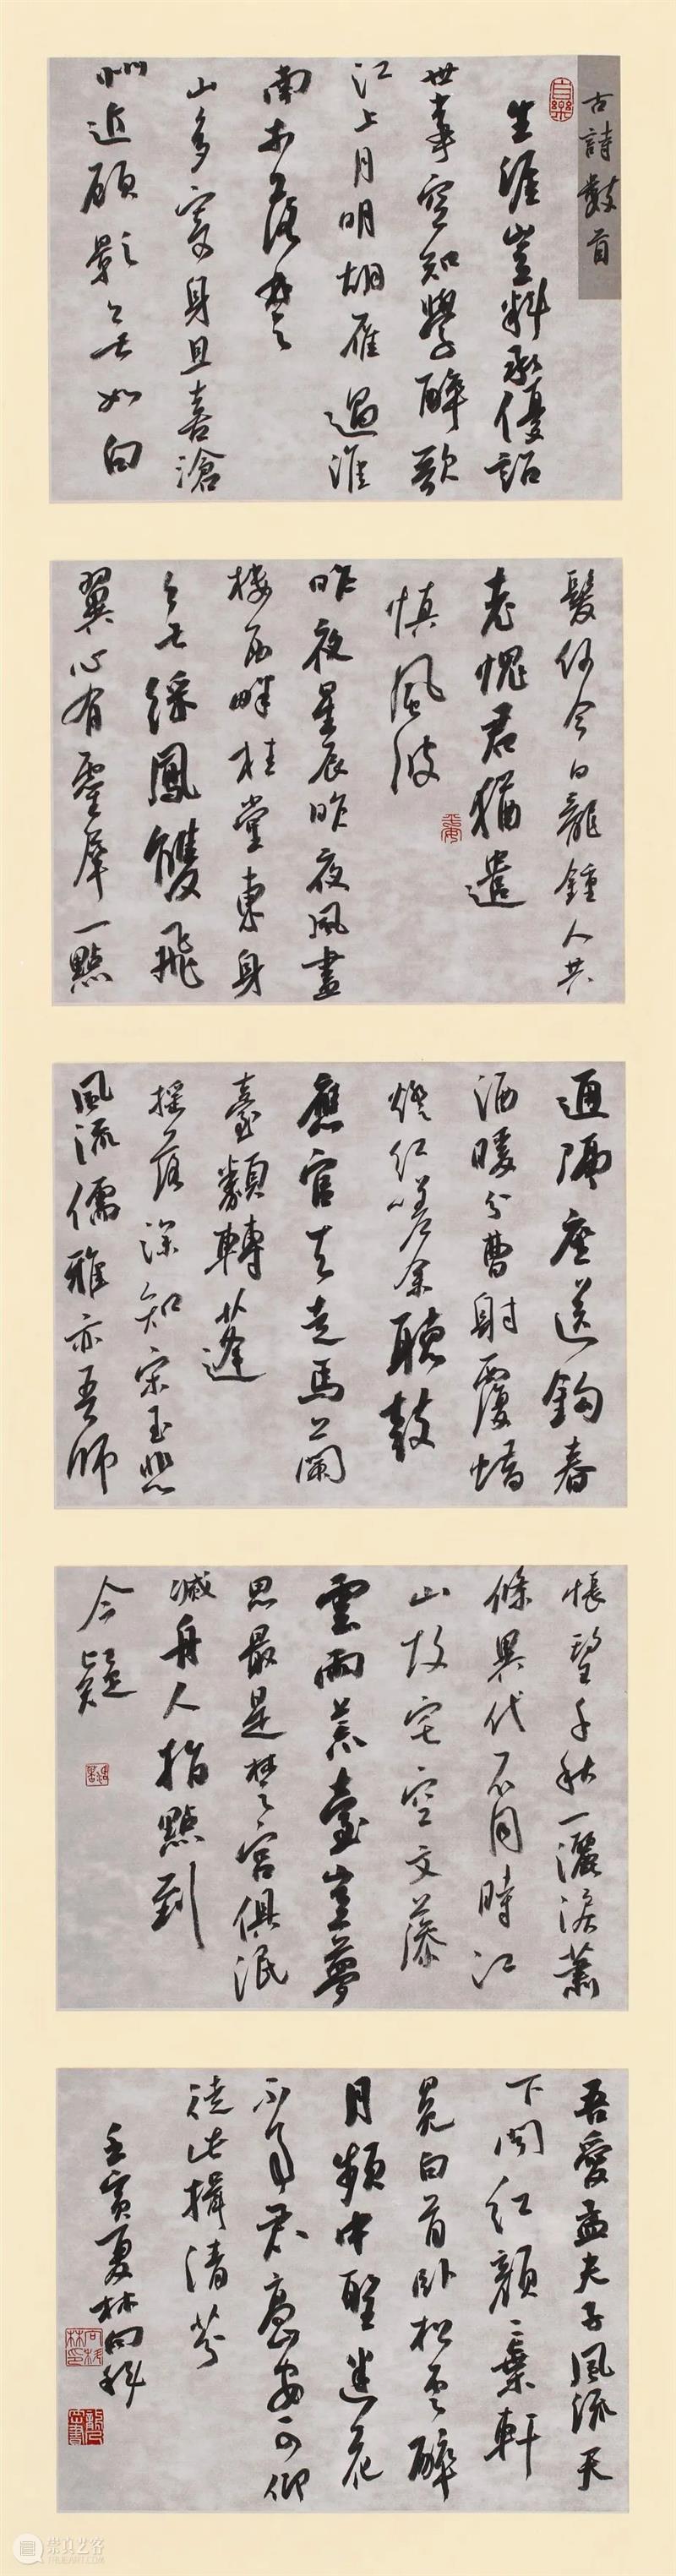 古詩數首
生涯豈料承優詔
世事空知學醉歌
江上月明胡雁過淮
南木落楚
山多寄身且喜滄
洲近顧影無如白
髮何今日龍鍾人共
老愧君猶遣
慎風波
昨夜星辰昨夜風畫
樓西畔桂堂東身
無綵鳳雙飛
翼心有靈犀一點
通隔座送鈎春
酒暖分曹射覆蠟
燈紅嗟余聽鼓
應官去走馬蘭
臺類轉蓬
搖落深知宋玉悲
風流儒雅亦吾師
悵望千秋一灑淚蕭
條異代不同時江
山故宅空文藻
雲雨荒臺豈夢
思最是楚宮俱泯
滅舟人指點到
今疑
吾愛孟夫子風流天
下聞紅顏棄軒
冕白首臥松雲醉
月頻中聖迷花
不事君高山安可仰
徒此揖清芬
壬寅夏林向科
崇真艺客